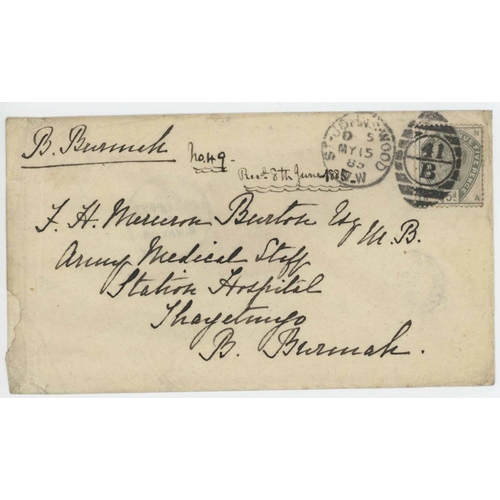 B. Burmah
No. 49.
Recd. 8th June/85
ST. JOHN'S WOOD
D 5
MY 15
85
N.W
41
B
5d
N
A
F. H. Mercron Burton Esq M.B.
Army Medical Staff
Station Hospital
Thayetmyo
B. Burmah.